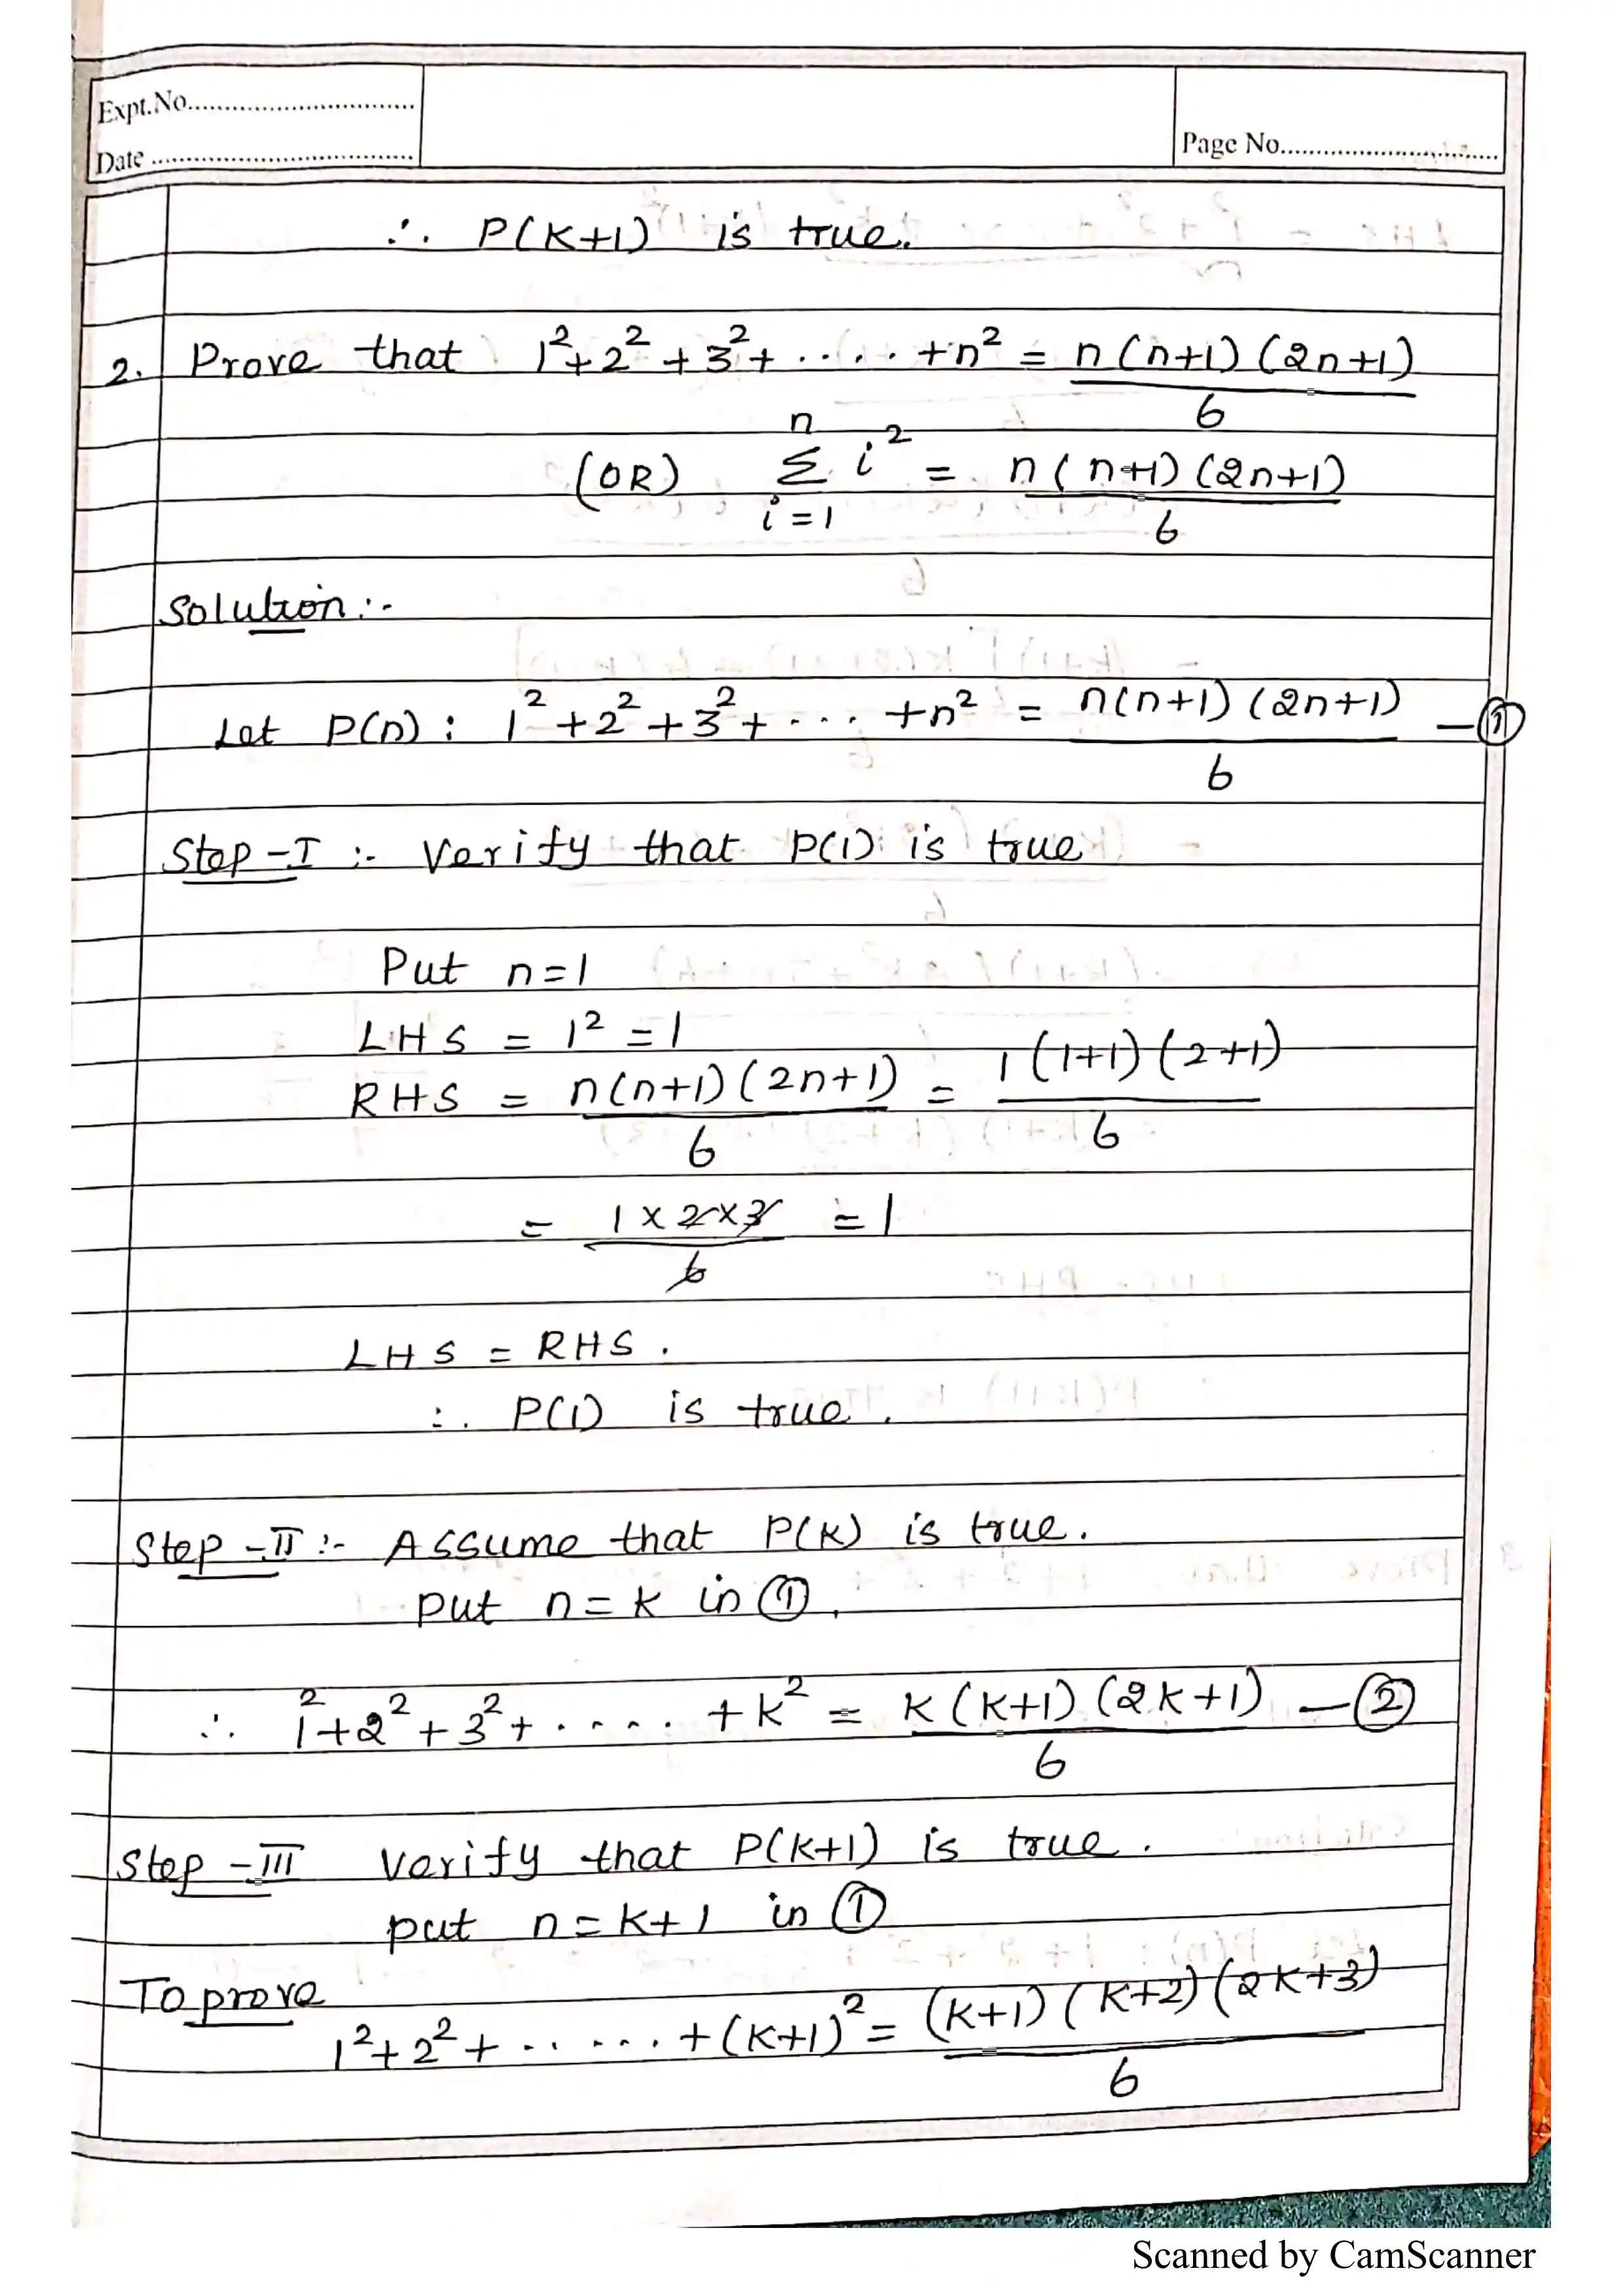 Expt.No..............................
Date ...................................
Page No..............................
∴ P(K+1) is true.
2. Prove that 1²+2²+3²+ .... +n² = n(n+1)(2n+1)
6
n
(OR) Σ i² = n(n+1)(2n+1)
i=1 6
Solution:-
Let P(n) : 1²+2²+3²+ ... +n² = n(n+1)(2n+1) —①
6
Step-I :- Verify that P(1) is true
Put n=1
LHS = 1² = 1
RHS = n(n+1)(2n+1) = 1(1+1)(2+1)
6 6
= 1×2×3 = 1
6
LHS = RHS.
∴ P(1) is true.
Step-II :- Assume that P(K) is true.
put n=K in ①.
∴ 1²+2²+3²+ ..... +K² = K(K+1)(2K+1) —②
6
Step-III Verify that P(K+1) is true.
put n=K+1 in ①
To prove
1²+2²+ ...... +(K+1)² = (K+1)(K+2)(2K+3)
6
Scanned by CamScanner